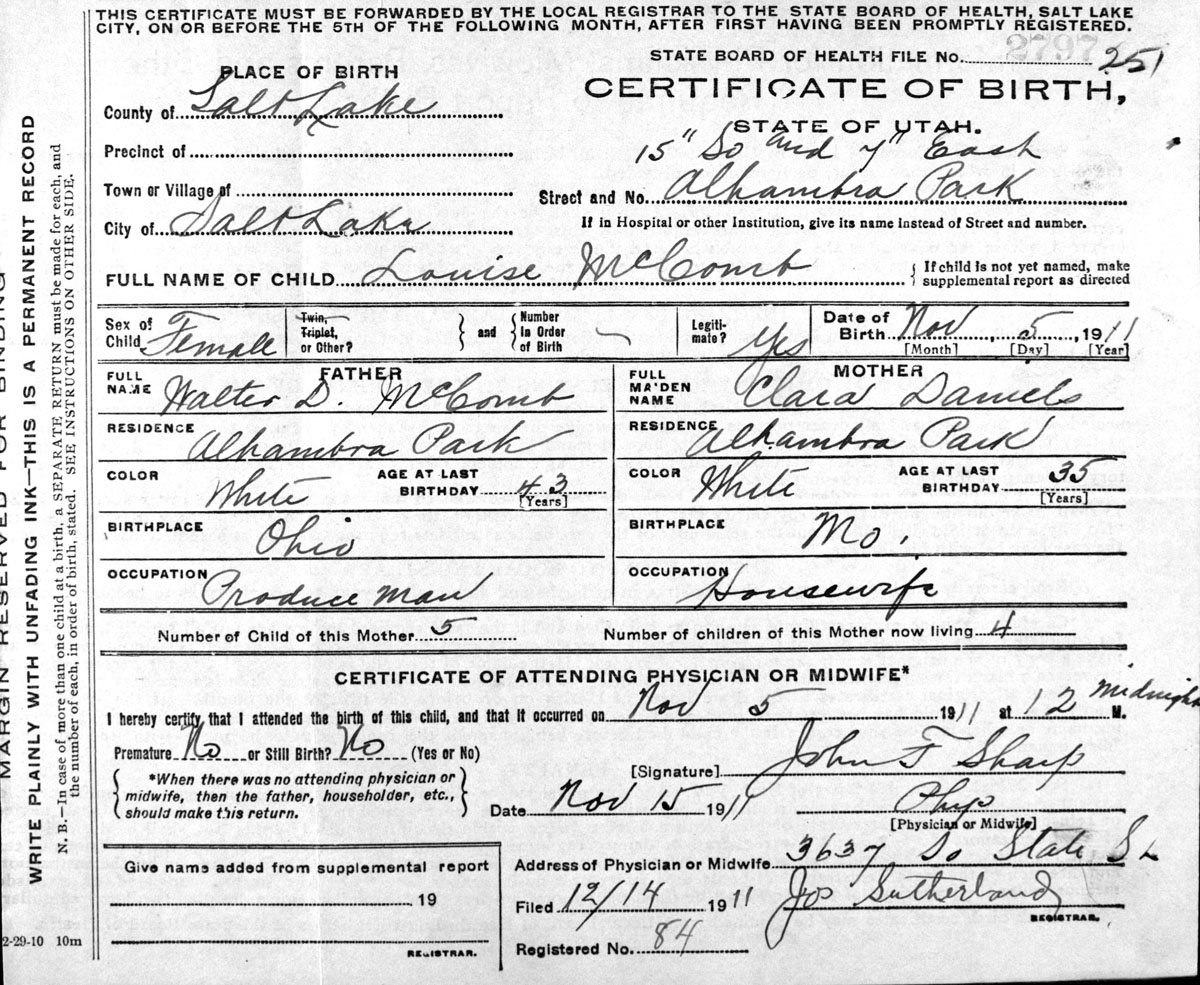 THIS CERTIFICATE MUST BE FORWARDED BY THE LOCAL REGISTRAR TO THE STATE BOARD OF HEALTH, SALT LAKE
CITY, ON OR BEFORE THE 5TH OF THE FOLLOWING MONTH, AFTER FIRST HAVING BEEN PROMPTLY REGISTERED.
2797
STATE BOARD OF HEALTH FILE No. 251
PLACE OF BIRTH
CERTIFICATE OF BIRTH,
County of Salt Lake
STATE OF UTAH.
Precinct of
15" So and 7" East
Town or Village of
Street and No. Alhambra Park
City of Salt Lake
If in Hospital or other Institution, give its name instead of Street and number.
FULL NAME OF CHILD Louise McComb { If child is not yet named, make
supplemental report as directed
Sex of Child Female Twin, Triplet, or Other? } and { Number in Order of Birth Legiti-mate? Yes Date of Birth Nov, 5, 1911
[Month] [Day] [Year]
FATHER MOTHER
FULL NAME Walter D. McComb FULL MAIDEN NAME Clara Daniels
RESIDENCE Alhambra Park RESIDENCE Alhambra Park
COLOR White AGE AT LAST BIRTHDAY 43 [Years] COLOR White AGE AT LAST BIRTHDAY 35 [Years]
BIRTHPLACE Ohio BIRTHPLACE Mo.
OCCUPATION Produce man OCCUPATION Housewife
Number of Child of this Mother 5 Number of children of this Mother now living 4
CERTIFICATE OF ATTENDING PHYSICIAN OR MIDWIFE*
I hereby certify that I attended the birth of this child, and that it occurred on Nov 5 1911 at 12 Midnight M.
Premature No or Still Birth? No (Yes or No)
{ *When there was no attending physician or
midwife, then the father, householder, etc.,
should make this return. }
[Signature] John F Sharp
Date Nov 15 1911 Phys
[Physician or Midwife]
Give name added from supplemental report
19
REGISTRAR.
Address of Physician or Midwife 3637 So State St
Filed 12/14 1911 Jos Sutherland
REGISTRAR.
Registered No. 84
2-29-10 10m
MARGIN RESERVED FOR BINDING
WRITE PLAINLY WITH UNFADING INK—THIS IS A PERMANENT RECORD
N. B.—In case of more than one child at a birth, a SEPARATE RETURN must be made for each, and
the number of each, in order of birth, stated. SEE INSTRUCTIONS ON OTHER SIDE.